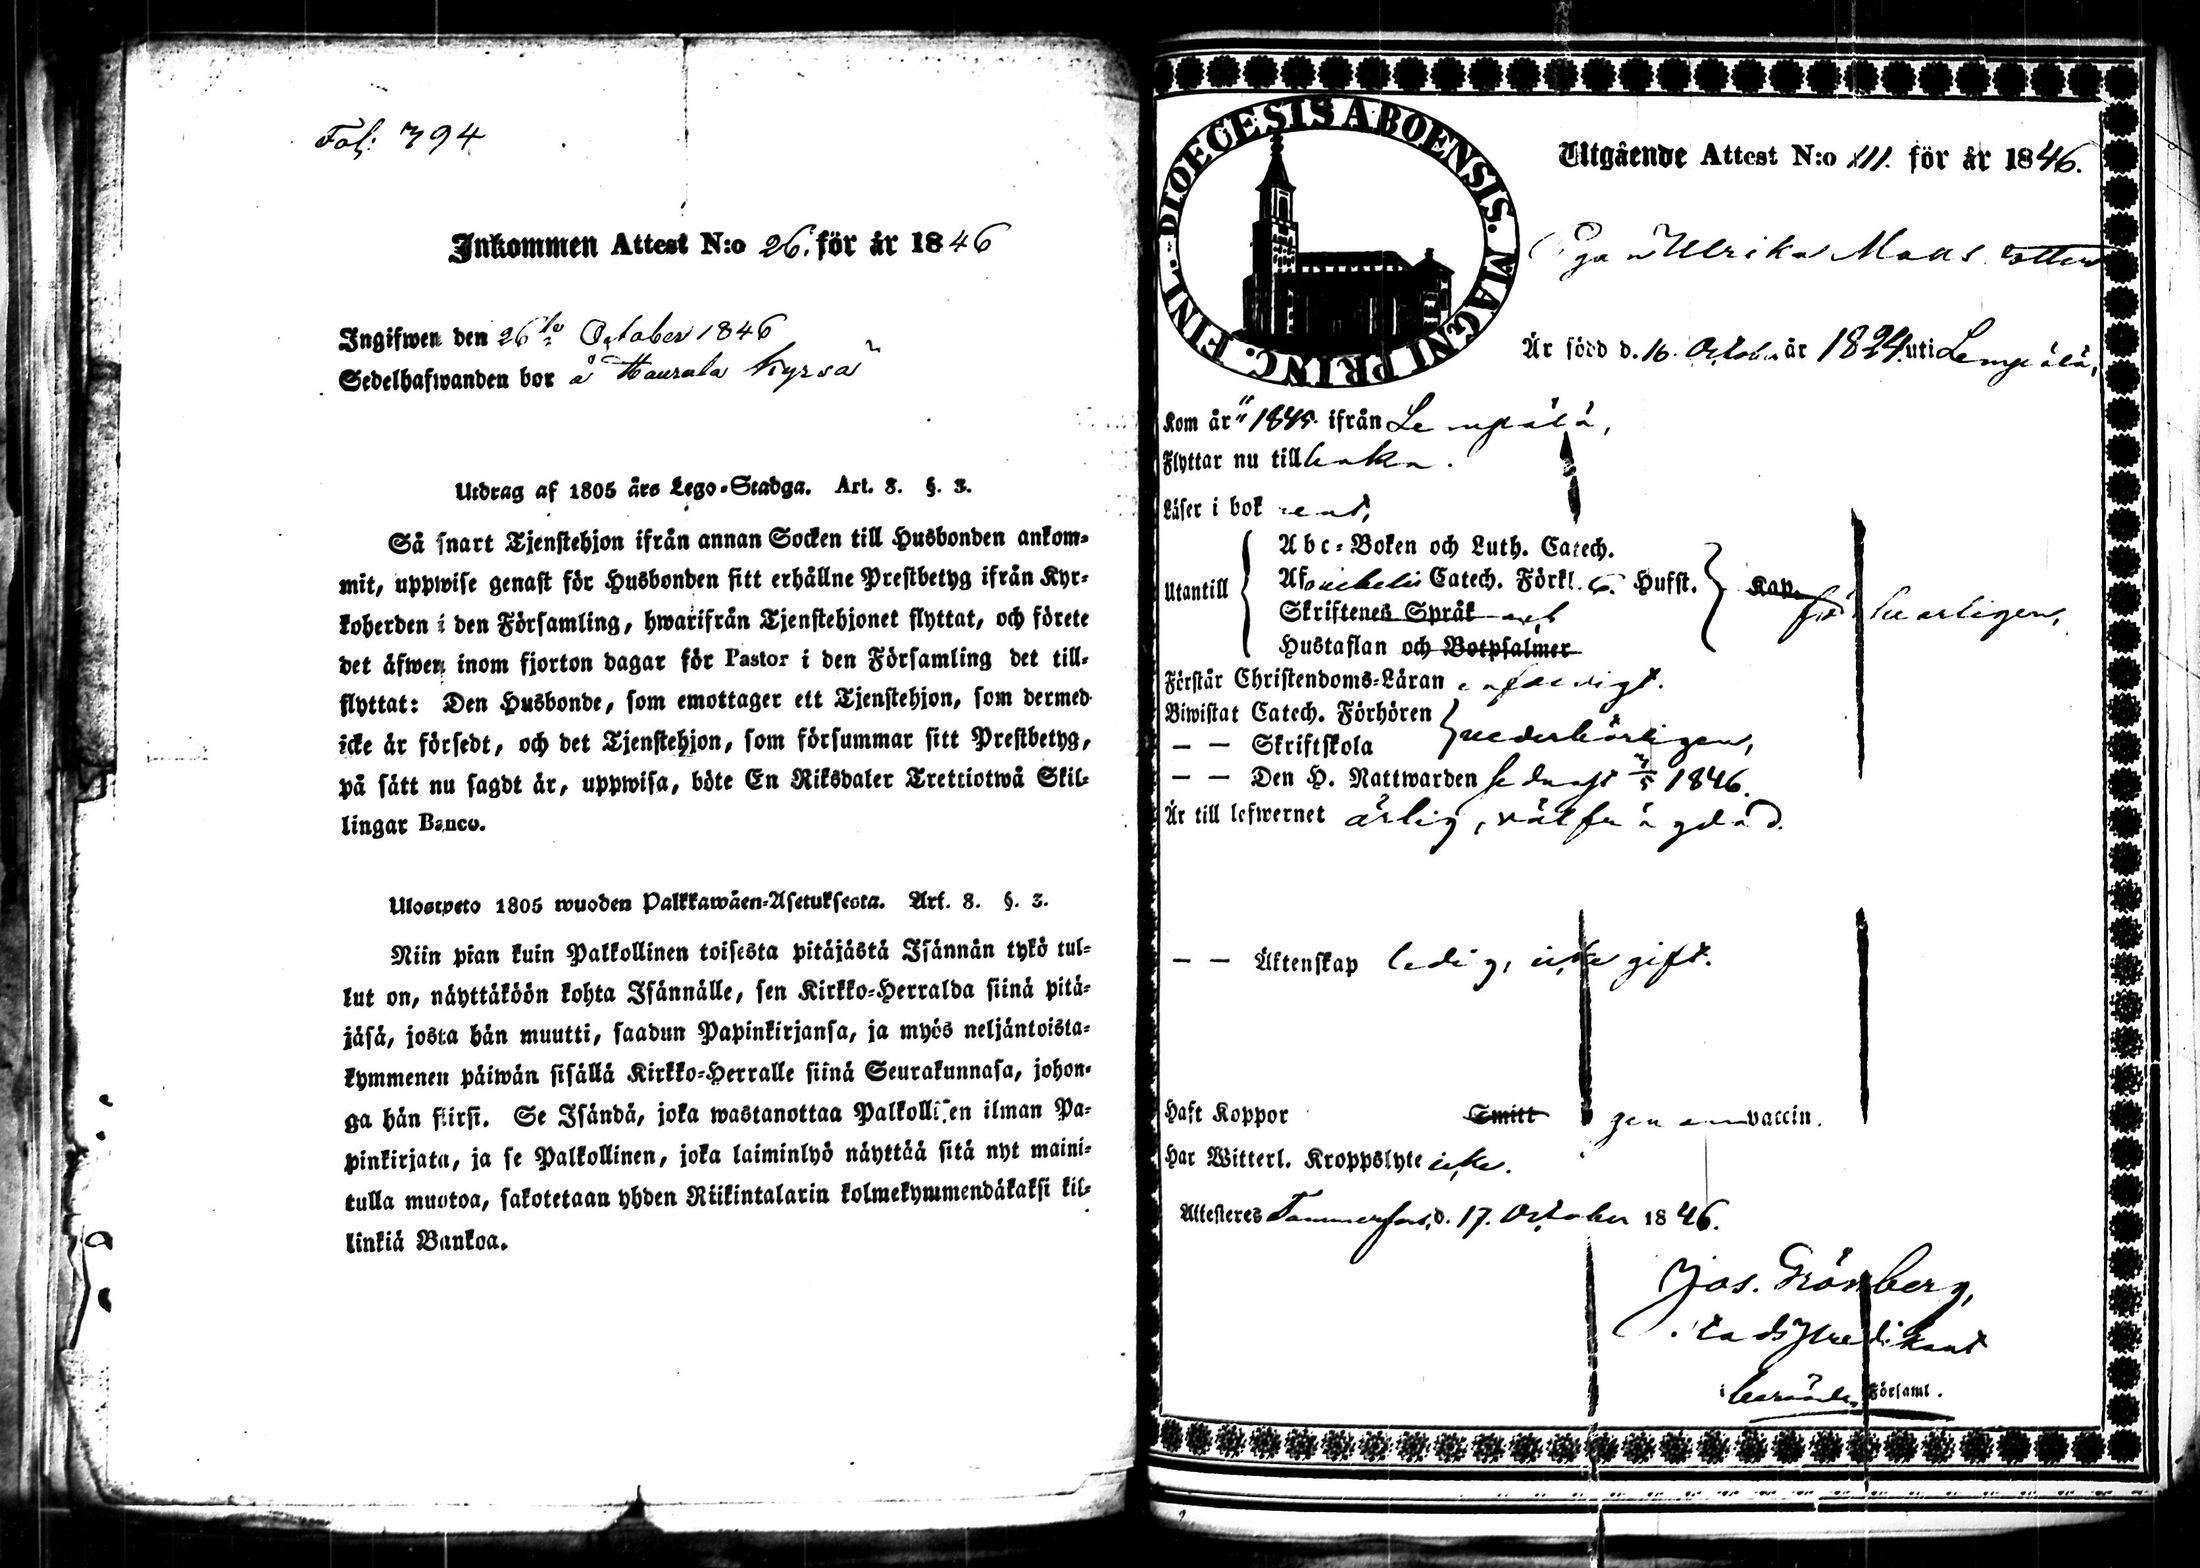 Fol: 794
Inkommen Attest N:o 26. för år 1846
Ingifwen den 26te October 1846
Sedelhafwanden bor å Haurala Kyroä
Utdrag af 1805 års Lego-Stadga. Art. 8. §. 3.
Så snart Tjenstehjon ifrån annan Socken till Husbonden ankom-
mit, uppwise genast för Husbonden sitt erhållne Prestbetyg ifrån Kyr-
koherden i den Församling, hwarifrån Tjenstehjonet flyttat, och förete
det äfwen inom fjorton dagar för Pastor i den Församling det till-
flyttat: Den Husbonde, som emottager ett Tjenstehjon, som dermed
icke är försedt, och det Tjenstehjon, som försummar sitt Prestbetyg,
på sätt nu sagdt är, uppwisa, böte En Riksdaler Trettiotwå Skil-
lingar Banco.
Ulostweto 1805 wuoden Palkkawäen-Asetuksesta. Art. 8. §. 3.
Niin pian kuin Palkollinen toisesta pitäjästä Isännän tykö tul-
lut on, näyttäköön kohta Isännälle, sen Kirkko-Herralda siinä pitä-
jäsä, josta hän muutti, saadun Papinkirjansa, ja myös neljäntoista-
kymmenen päiwän sisällä Kirkko-Herralle siinä Seurakunnasa, johon-
ga hän siirsi. Se Isändä, joka wastanottaa Palkollisen ilman Pa-
pinkirjata, ja se Palkollinen, joka laiminlyö näyttää sitä nyt maini-
tulla muotoa, sakotetaan yhden Riikintalarin kolmekymmendäkaksi kil-
linkiä Bankoa.
DIOECESIS ABOENSIS. MAGNI PRINC. FINL.
Utgående Attest N:o 111. för år 1846.
Pigan Ulrika Matts dotter
Är född d. 16. October år 1824. uti Lempälä,
Kom år 1845. ifrån Lempälä,
Flyttar nu tillbaka.
Läser i bok rent,
Utantill
Abc-Boken och Luth. Catech.
Catech. Förkl. Hufst.
Kap.
Skriftenes Språk
Hustaflan och Botpsalmer
försvarligen,
Förstår Christendoms-Läran enfaldigt.
Biwistat Catech. Förhören
— — Skriftskola
vederbörligen,
— — Den H. Nattwarden sednast 3/5 1846.
Är till lefwernet ärlig, välfrägdad.
— — Äktenskap ledig, icke gift.
Haft Koppor Smitt genom vaccin.
Har Witterl. Kroppslyte icke.
Attesteres Tammerfors, d. 17. October 1846.
Jos. Grönberg,
Stadspredikant
i berörde Församl.